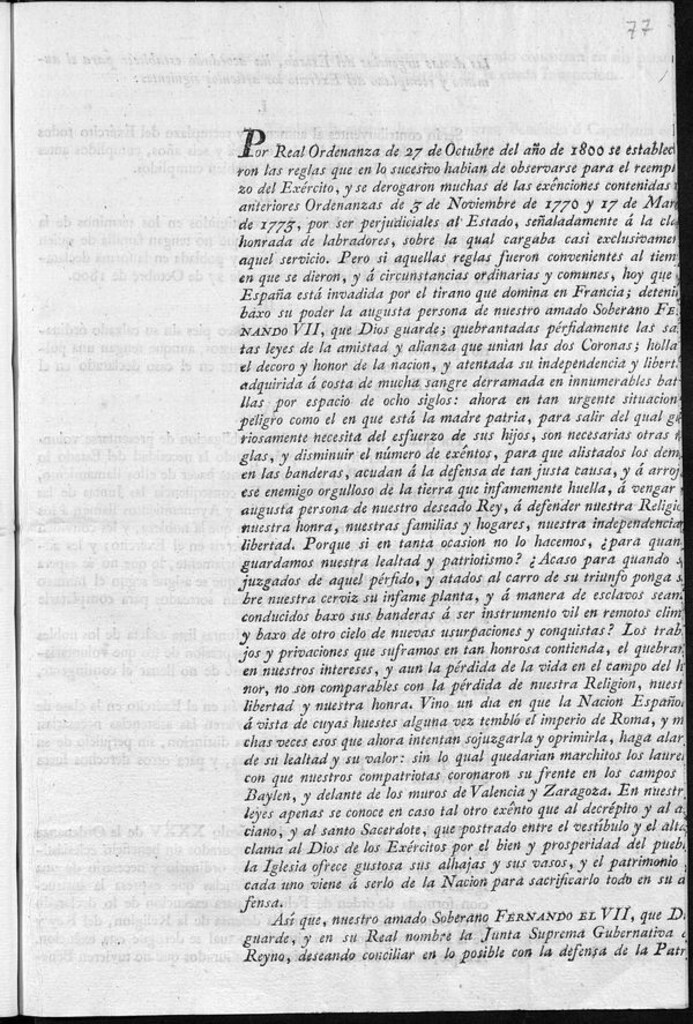 77
Por Real Ordenanza de 27 de Octubre del año de 1800 se establec
ron las reglas que en lo sucesivo habian de observarse para el reemp
zo del Exército, y se derogaron muchas de las exênciones contenidas
anteriores Ordenanzas de 3 de Noviembre de 1770 y 17 de Mar
de 1773, por ser perjudiciales al Estado, señaladamente á la cla
honrada de labradores, sobre la qual cargaba casi exclusivame
aquel servicio. Pero si aquellas reglas fueron convenientes al tiem
en que se dieron, y á circunstancias ordinarias y comunes, hoy que
España está invadida por el tirano que domina en Francia; deteni
baxo su poder la augusta persona de nuestro amado Soberano FE
NANDO VII, que Dios guarde; quebrantadas pérfidamente las sa
tas leyes de la amistad y alianza que unian las dos Coronas; holla
el decoro y honor de la nacion, y atentada su independencia y libert
adquirida á costa de mucha sangre derramada en innumerables bat
llas por espacio de ocho siglos: ahora en tan urgente situacion
peligro como el en que está la madre patria, para salir del qual g
riosamente necesita del esfuerzo de sus hijos, son necesarias otras
glas, y disminuir el número de exêntos, para que alistados los dem
en las banderas, acudan á la defensa de tan justa causa, y á arroj
ese enemigo orgulloso de la tierra que infamemente huella, á vengar
augusta persona de nuestro deseado Rey, á defender nuestra Religi
nuestra honra, nuestras familias y hogares, nuestra independencia
libertad. Porque si en tanta ocasion no lo hacemos, ¿para quan
guardamos nuestra lealtad y patriotismo? ¿Acaso para quando s
juzgados de aquel pérfido, y atados al carro de su triunfo ponga s
bre nuestra cerviz su infame planta, y á manera de esclavos seam
conducidos baxo sus banderas á ser instrumento vil en remotos clim
y baxo de otro cielo de nuevas usurpaciones y conquistas? Los trab
jos y privaciones que suframos en tan honrosa contienda, el quebran
en nuestros intereses, y aun la pérdida de la vida en el campo del h
nor, no son comparables con la pérdida de nuestra Religion, nuest
libertad y nuestra honra. Vino un dia en que la Nacion Español
á vista de cuyas huestes alguna vez tembló el imperio de Roma, y m
chas veces esos que ahora intentan sojuzgarla y oprimirla, haga alar
de su lealtad y su valor: sin lo qual quedarian marchitos los laure
con que nuestros compatriotas coronaron su frente en los campos
Baylen, y delante de los muros de Valencia y Zaragoza. En nuestr
leyes apenas se conoce en caso tal otro exênto que al decrépito y al a
ciano, y al santo Sacerdote, que postrado entre el vestíbulo y el alta
clama al Dios de los Exércitos por el bien y prosperidad del pueb
la Iglesia ofrece gustosa sus alhajas y sus vasos, y el patrimonio
cada uno viene á serlo de la Nacion para sacrificarlo todo en su
fensa.
Así que, nuestro amado Soberano FERNANDO EL VII, que D
guarde, y en su Real nombre la Junta Suprema Gubernativa
Reyno, deseando conciliar en lo posible con la defensa de la Patr